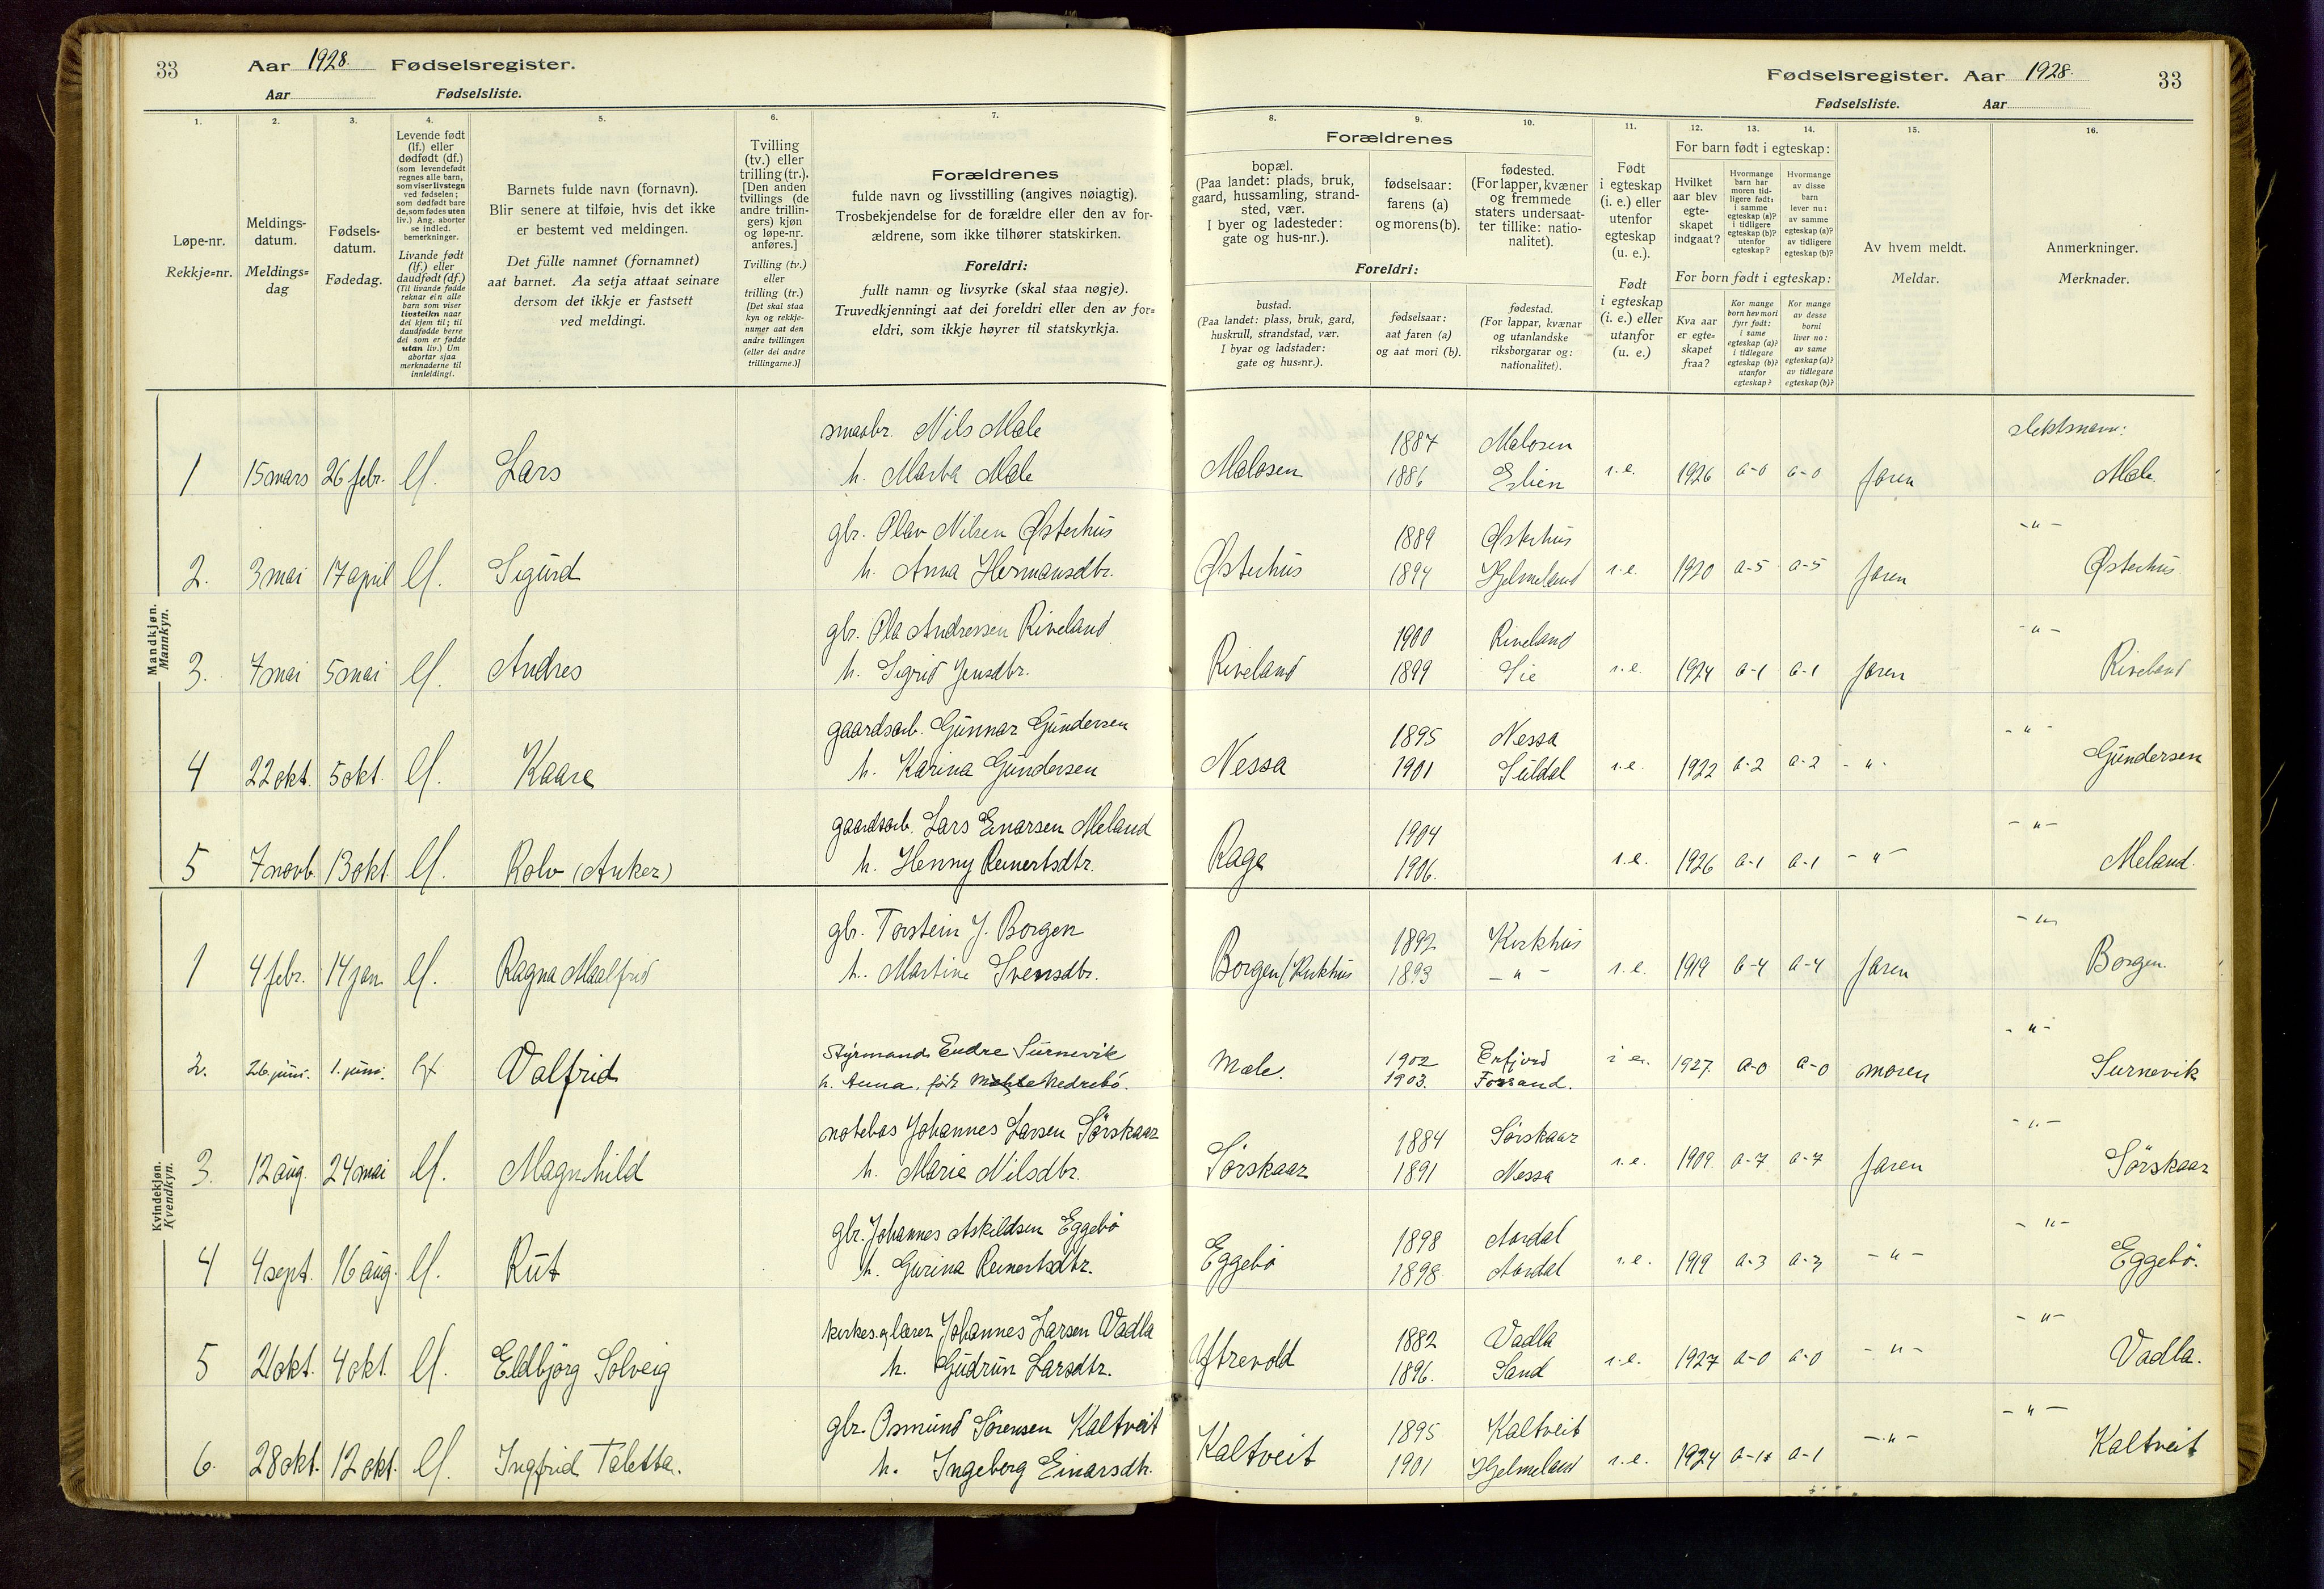 33 Aar 1928. Fødselsregister.
Aar Fødselsliste.
Fødselsregister. Aar 1928. 33
Fødselsliste. Aar
1. 2. 3. 4. 5. 6. 7.
Løpe-nr.
Rekkje=nr.
Meldings-
datum.
Meldings=
dag
Fødsels-
datum.
Fødedag.
Levende født
(lf.) eller
dødfødt (df.)
(som levendefødt
regnes alle barn,
som viser livstegn
ved fødselen;
som dødfødt bare
de, som fødes uten
liv.) Ang. aborter
se indled.
bemerkninger.
Livande født
(lf.) eller
daudfødt (df.)
(Til livande fødde
reknar ein alle
barn som viser
livsteikn naar
dei kjem til; til
daudfødde berre
dei som er fødde
utan liv.) Um
abortar sjaa
merknaderne til
innleidingi.
Barnets fulde navn (fornavn).
Blir senere at tilføie, hvis det ikke
er bestemt ved meldingen.
Det fulle namnet (fornamnet)
aat barnet. Aa setja attaat seinare
dersom det ikkje er fastsett
ved meldingi.
Tvilling
(tv.) eller
trilling (tr.).
[Den anden
tvillings (de
andre trillin-
gers) kjøn
og løpe-nr.
anføres.]
Tvilling (tv.)
eller
trilling (tr.)
[Det skal staa
kyn og rekkje-
numer aat den
andre tvillingen
(eller dei andre
trillingarne.)]
Forældrenes
fulde navn og livsstilling (angives nøiagtig).
Trosbekjendelse for de forældre eller den av for-
ældrene, som ikke tilhører statskirken.
Foreldri:
fullt namn og livsyrke (skal staa nøgje).
Truvedkjenningi aat dei foreldri eller den av for=
eldri, som ikkje høyrer til statskyrkja.
8. 9. 10. 11. 12. 13. 14. 15. 16.
Forældrenes
bopæl.
(Paa landet: plads, bruk,
gaard, hussamling, strand-
sted, vær.
I byer og ladesteder:
gate og hus-nr.).
fødselsaar:
farens (a)
og morens (b).
fødested.
(For lapper, kvæner
og fremmede
staters undersaat-
ter tillike: natio-
nalitet).
Foreldri:
bustad.
(Paa landet: plass, bruk, gard,
huskrull, strandstad, vær.
I byar og ladstader:
gate og hus=nr.).
fødselsaar:
aat faren (a)
og aat mori (b).
fødestad.
(For lappar, kvænar
og utanlandske
riksborgarar og:
nationalitet).
Født
i egteskap
(i. e.) eller
utenfor
egteskap
(u. e.).
Født
i egteskap
(i. e.) eller
utanfor
(u. e.)
For barn født i egteskap:
Hvilket
aar blev
egte-
skapet
indgaat?
Hvormange
barn har
moren tid-
ligere født:
i samme
egteskap (a)?
i tidligere
egteskap (b)?
utenfor
egteskap?
Hvormange
av disse
barn
lever nu:
av samme
egteskap (a)?
av tidligere
egteskap (b)?
For born født i egteskap:
Kva aar
er egte=
skapet
fraa?
Kor mange
born hev mori
fyrr født:
i same
egteskap (a)?
i tidlegare
egteskap (b)?
utanfor
egteskap?
Kor mange
av desse
borni
liver no:
av same
egteskap (a)?
av tidlegare
egteskap (b)?
Av hvem meldt.
Meldar.
Anmerkninger.
Merknader.
Mandkjøn.
Mannkyn.
smaabr. Nils Mæle 1887 Malosen slektsnavn:
1 15 mars 26 febr. lf. Lars h. Marta Mæle Malosen 1886 i.e. 1926 a-0 a-0 faren Mæle
gbr. Olav Nilsen Østerhus 1889 Østerhus -"-
2. 3 mai 17 april lf. Sigurd h. Anna Hermansdtr. Østerhus 1894 Hjelmeland i.e. 1920 a-5 a-5 faren Østerhus
gbr. Ola Andressen Riveland 1900 Riveland -"-
3. 7 mai 5 mai lf. Andres h. Sigrid Jensdtr. Riveland 1899 Sie i.e. 1924 a-1 a-1 faren Riveland
gaardsarb. Gunnar Gundersen 1895 Nessa -"-
4 22 okt. 5 okt. lf. Kaare h. Karina Gundersen Nessa 1901 Suldal i.e. 1922 a-2 a-2 -"- Gundersen
gaardsarb. Lars Einarsen Meland 1904 -"-
5 7 novb. 13 okt. lf. Rolv (Anker) h. Henny Reinertsdtr. Rage 1906. i.e. 1926 a-1 a-1 -"- Meland.
Kvindekjøn.
Kvendkyn.
gbr. Torstein J. Borgen 1892 Kirkhus -"-
1 4 febr. 14 jan. lf. Ragna Maalfrid h. Martine Svensdtr. Borgen/Kirkhus 1893 -"- i.e. 1919 a-4 a-4 faren Borgen.
Styrmand Endre Surnevik 1902 Erfjord -"-
2. 26. juni. 1. juni. lf Valfrid h. Anna, født Nedrebö. Mæle. 1903. Forsand. i e. 1927. a-0 a-0 moren Surnevik
notebas Johannes Larsen Sörskaar 1884 Sörskaar -"-
3. 12 aug. 24 mai lf. Magnhild h. Maria Nilsdtr. Sörskaar 1891 Nessa i.e. 1909. a-7 a-7 faren Sörskaar
gbr. Johannes Askildsen Eggebö 1898 Aardal -"-
4 4 sept. 16 aug. lf. Rut h. Gurina Reinertsdtr. Eggebö 1898 Aardal i.e. 1919 a-3 a-3 -"- Eggebö.
kirkes. og lærer Johannes Larsen Vadla 1882 Vadla -"-
5 21 okt. 4 okt. lf. Eldbjörg Solveig h. Gudrun Larsdtr. Yftrevold 1896. Sand i.e. 1927 a-0 a-0 -"- Vadla.
gbr. Osmund Sörensen Kaltveit 1895 Kaltveit -"-
6. 28 okt. 12 okt. lf. Ingfrid Taletta. h. Ingeborg Einarsdtr. Kaltveit 1901 Hjelmeland i.e. 1924 a-1 a-1 -"- Kaltveit